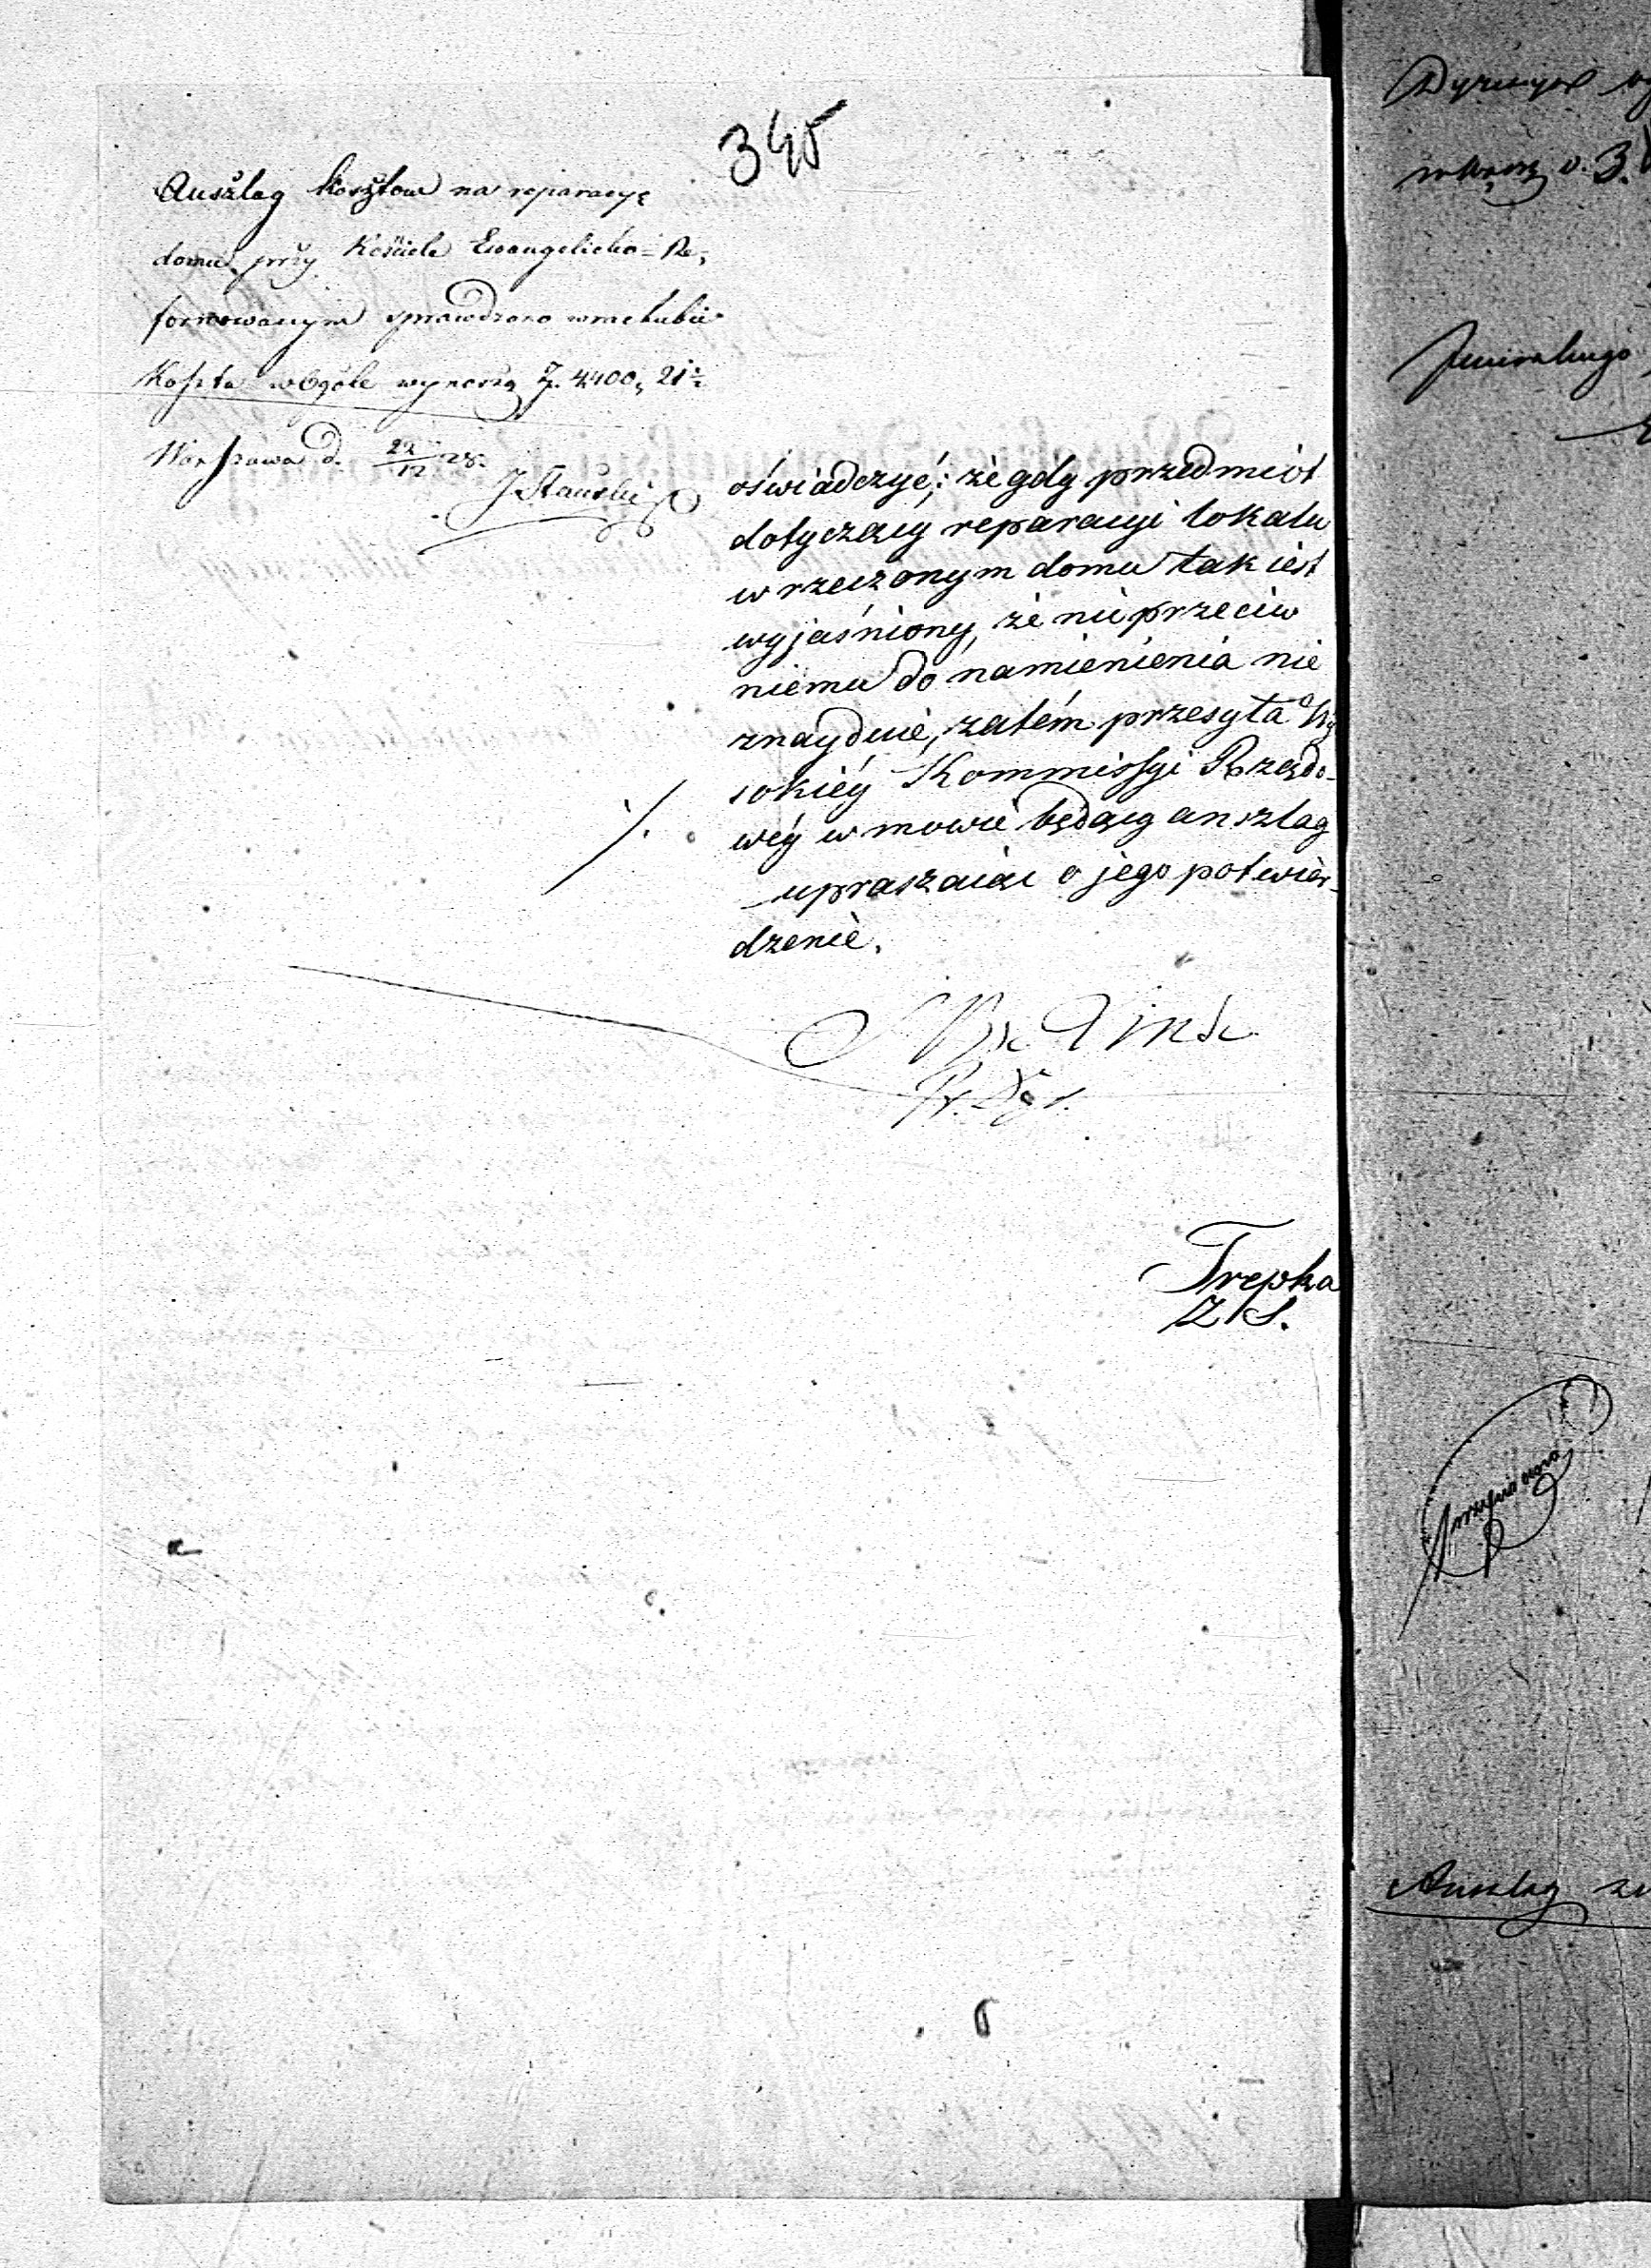 345
Anszlag kosztow na reparacyę
domu przy Kościele Ewangelicko=Re,
formowanym sprawdzono w rachubie
Koszta w ogóle wynoszą Zł. 4400, 21½
Warszawa d. 22/12 28.
oświadczyć; że gdy przedmiot
dotyczący reparacyi lokalu
w rzeczonym domu tak iest
wyjaśniony, że nic przeciw
niemu do namienienia nie
znayduie, zatém przesyła Wy
sokiéy Kommissyi Rządo-
wéy w mowie będący anszlag
upraszaiąc o jego potwier-
dzenie.
Trepka
Z S.
Jeneralnego
Anszlag